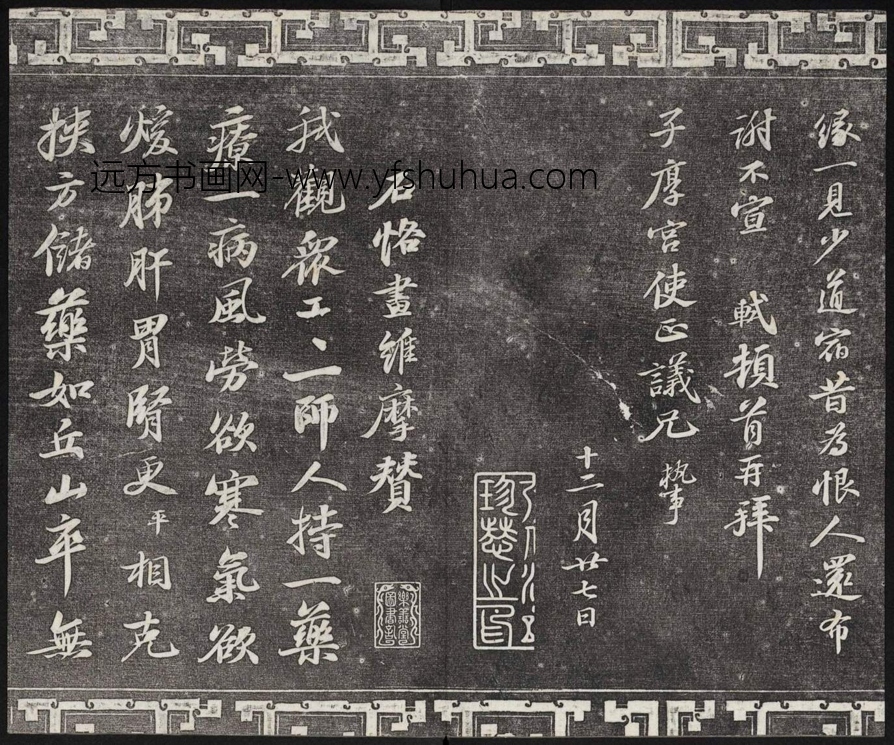 緣一見少道宿昔為恨人還布
謝不宣 軾頓首再拜
子厚宫使正議兄執事
十二月廿七日
石恪畫維摩贊
我觀衆工工一師人持一藥
療一病風勞欲寒氣欲
煖肺肝胃腎更平相克
挾方儲藥如丘山卒無
远方书画网-www.yfshuhua.com